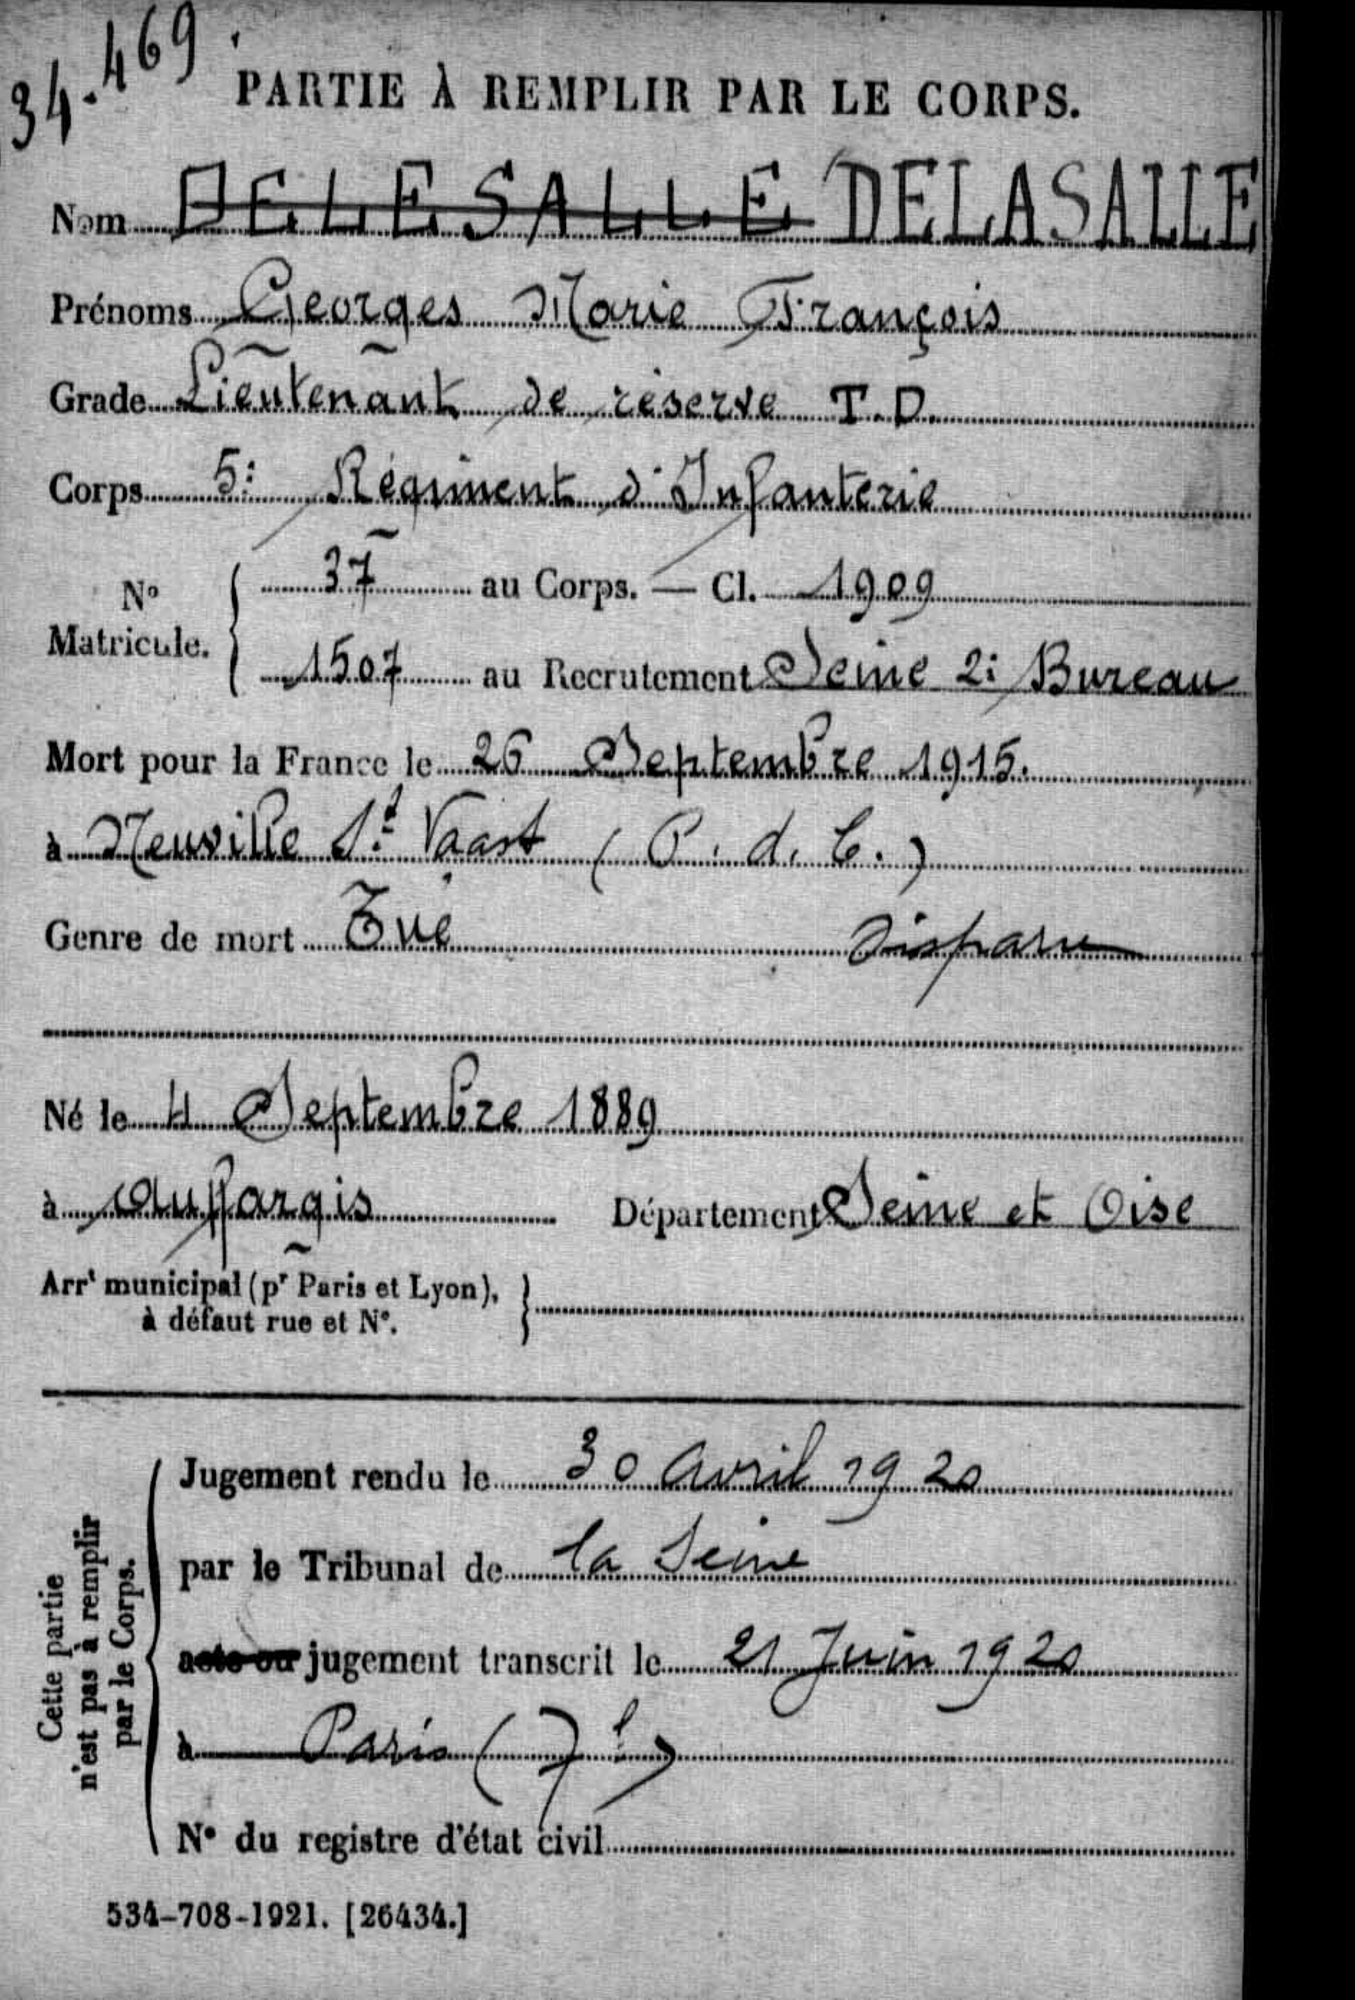 34.469
PARTIE À REMPLIR PAR LE CORPS.
Nom DELESALLE DELASALLE
Prénoms Georges Marie François
Grade Lieutenant de réserve T.D.
Corps 5: Régiment d'Infanterie
N° Matricule. 37 au Corps. — Cl. 1909
1507 au Recrutement Seine 2: Bureau
Mort pour la France le 26 Septembre 1915.
à Neuville St Vaast (P. d. C.)
Genre de mort Tué Disparu
Né le 4 Septembre 1889
à Auffargis Département Seine et Oise
Arrt municipal (pr Paris et Lyon),
à défaut rue et N°.
Cette partie
n'est pas à remplir
par le Corps.
Jugement rendu le 30 Avril 1920
par le Tribunal de la Seine
acte ou jugement transcrit le 21 Juin 1920
à Paris (7e)
N° du registre d'état civil
534-708-1921. [26434.]